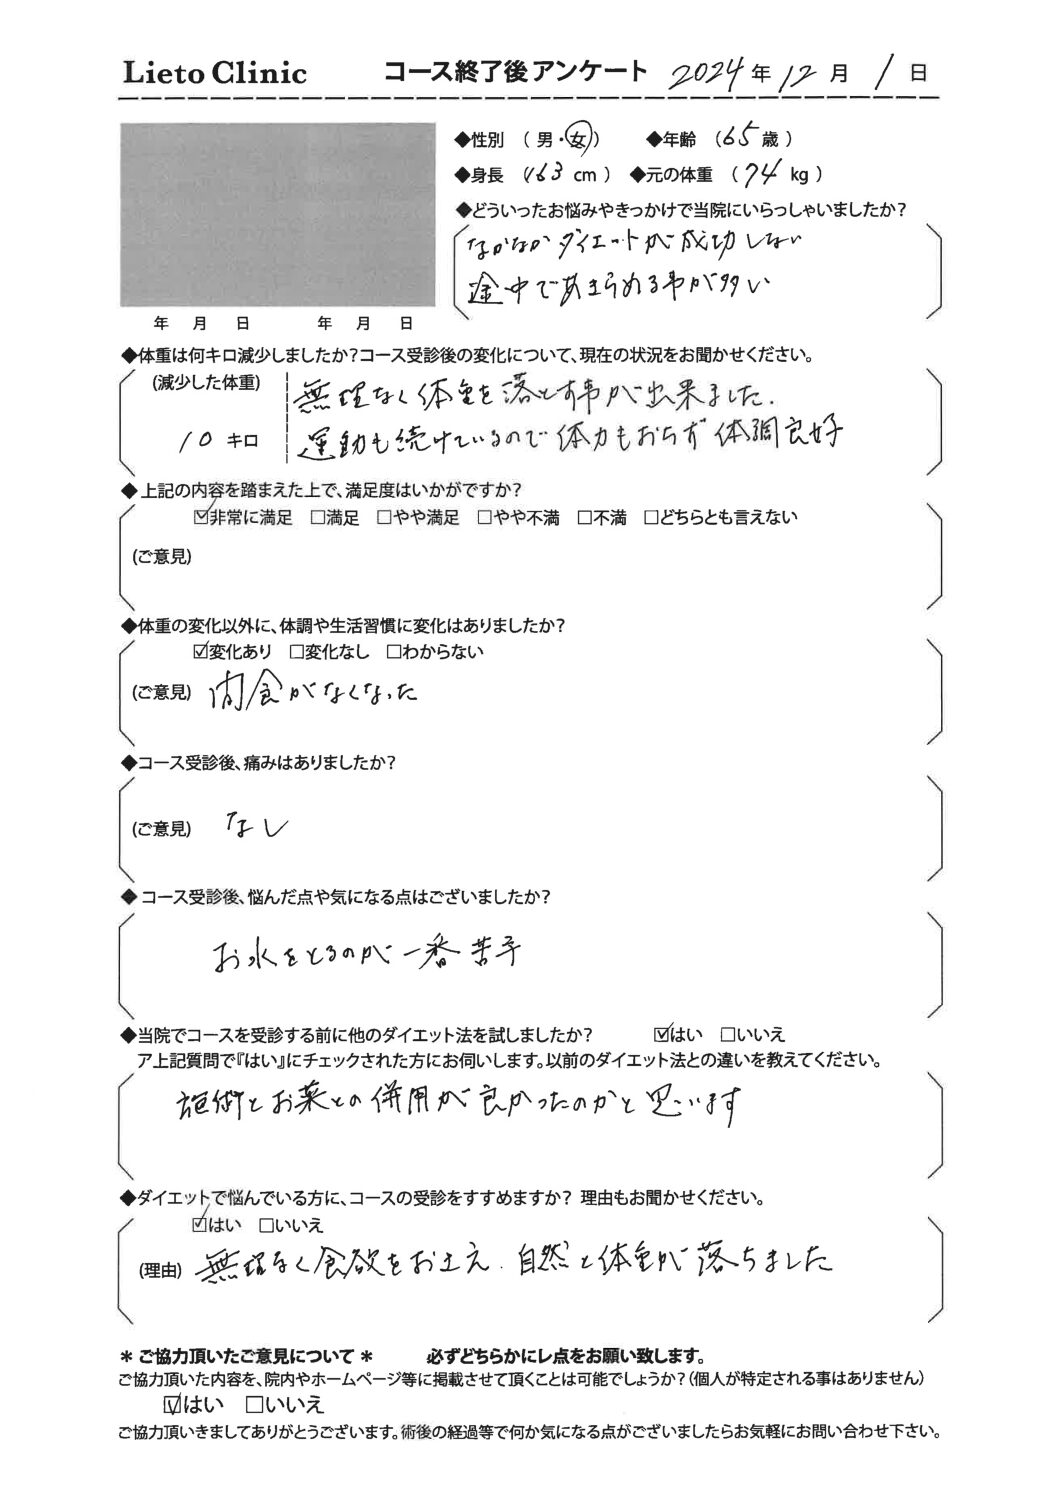 Lieto Clinic コース終了後アンケート 2024年 12月 1日
◆性別 （男・女） ◆年齢 （65歳）
◆身長 （163 cm） ◆元の体重 （74 kg）
◆どういったお悩みやきっかけで当院にいらっしゃいましたか？
なかなかダイエットが成功しない
途中であきらめる事が多い
年 月 日 年 月 日
◆体重は何キロ減少しましたか？コース受診後の変化について、現在の状況をお聞かせください。
(減少した体重) 無理なく体重を落とす事が出来ました.
10 キロ 運動も続けているので体力もおちず体調良好
◆上記の内容を踏まえた上で、満足度はいかがですか？
☑非常に満足 □満足 □やや満足 □やや不満 □不満 □どちらとも言えない
(ご意見)
◆体重の変化以外に、体調や生活習慣に変化はありましたか？
☑変化あり □変化なし □わからない
(ご意見) 間食がなくなった
◆コース受診後、痛みはありましたか？
(ご意見) なし
◆コース受診後、悩んだ点や気になる点はございましたか？
お水をとるのが一番苦手
◆当院でコースを受診する前に他のダイエット法を試しましたか？ ☑はい □いいえ
ア上記質問で『はい』にチェックされた方にお伺いします。以前のダイエット法との違いを教えてください。
施術とお薬との併用が良かったのかと思います
◆ダイエットで悩んでいる方に、コースの受診をすすめますか？ 理由もお聞かせください。
☑はい □いいえ
(理由) 無理なく食欲をおさえ. 自然と体重が落ちました
＊ご協力頂いたご意見について＊ 必ずどちらかにレ点をお願い致します。
ご協力頂いた内容を、院内やホームページ等に掲載させて頂くことは可能でしょうか？（個人が特定される事はありません）
☑はい □いいえ
ご協力頂いきましてありがとうございます。術後の経過等で何か気になる点がございましたらお気軽にお問い合わせ下さい。